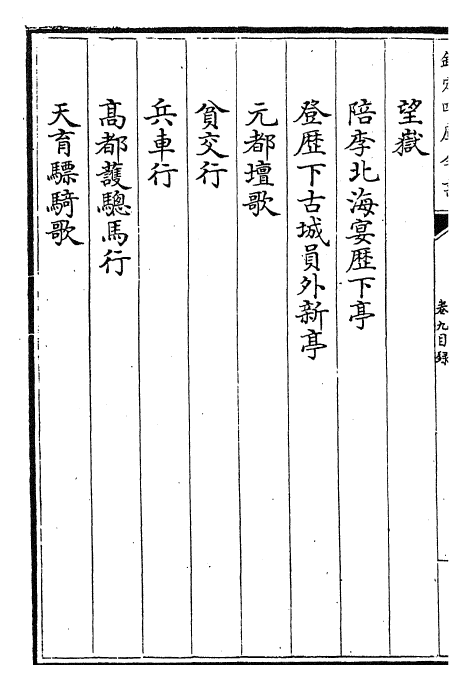 望嶽
陪李北海宴歴下亭
登歴下古城員外新亭
元都壇歌
貧交行
兵車行
髙都護驄馬行
天育驃騎歌
卷九目録